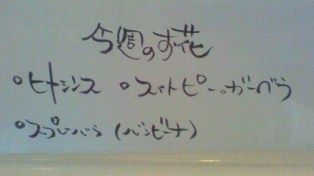 今週のお花
○ヒヤシンス ○スイートピー ○ガーベラ
○スプレーバラ (バンビーナ)